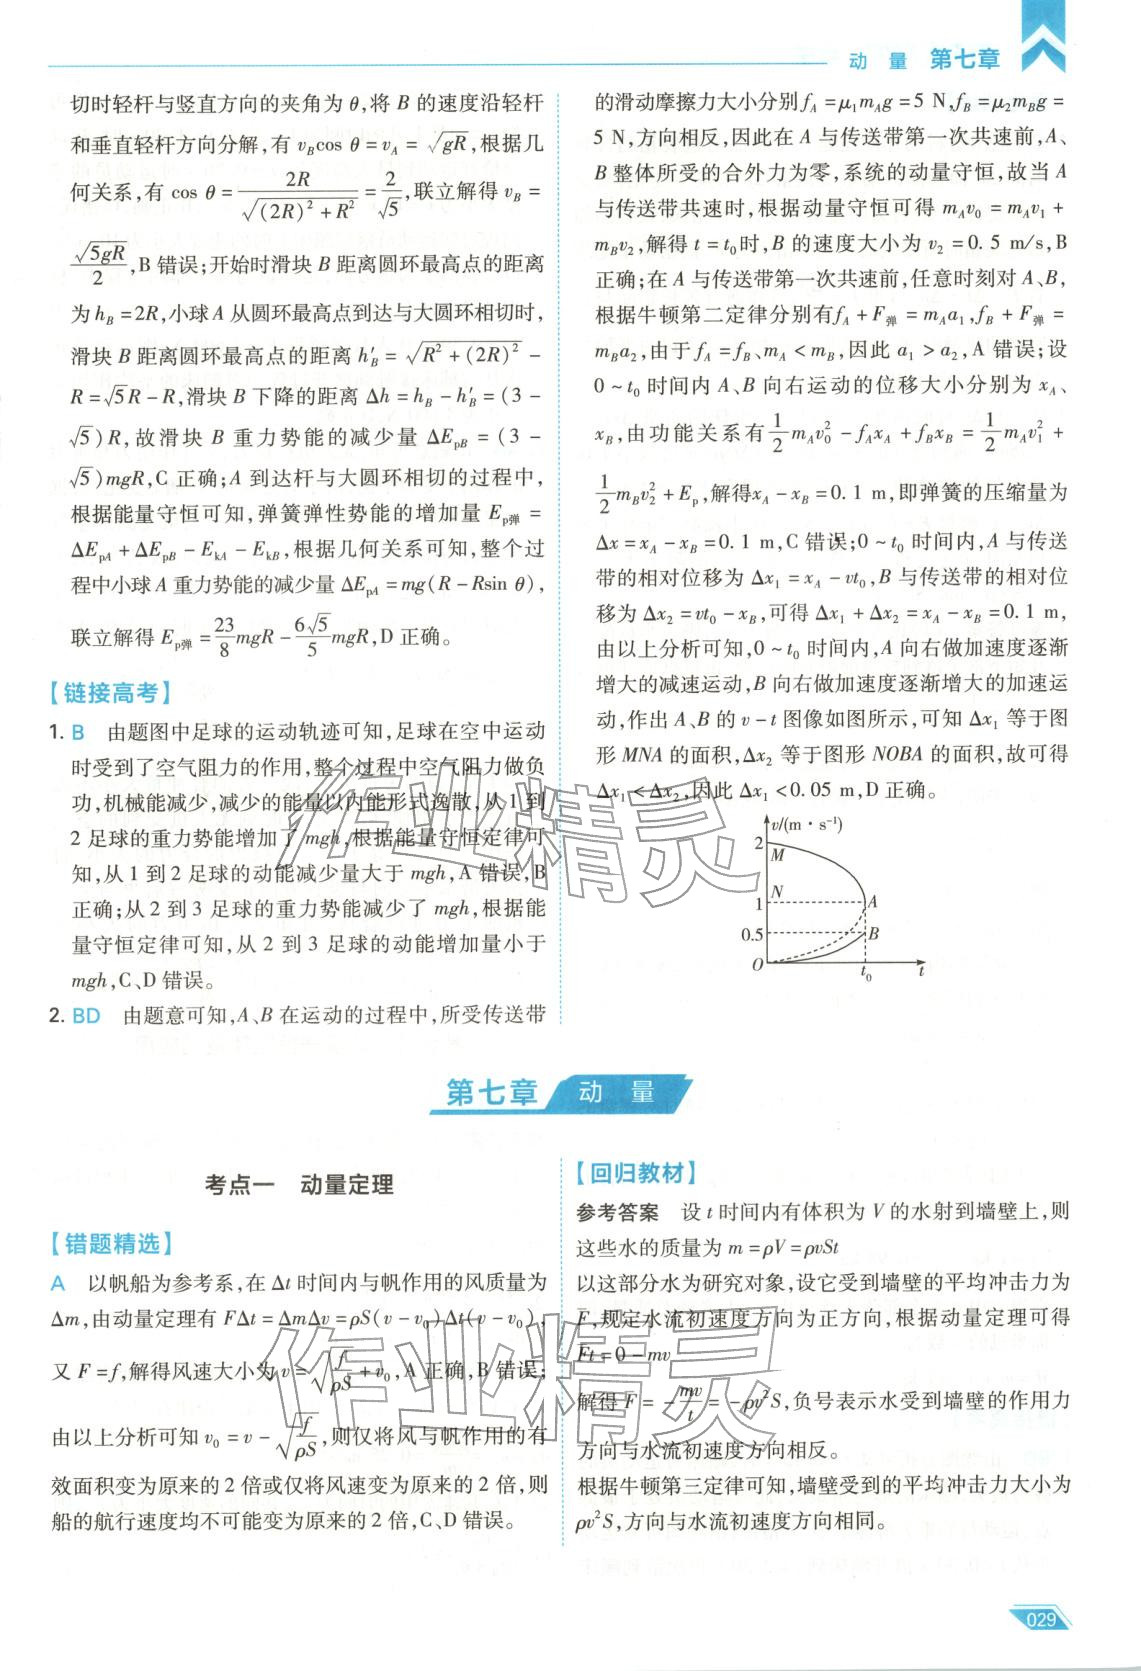 动 量 第七章
切时轻杆与竖直方向的夹角为 θ,将 B 的速度沿轻杆
和垂直轻杆方向分解,有 v_B cos θ = v_A = √(gR),根据几
何关系,有 cos θ = 2R/√((2R)²+R²) = 2/√5,联立解得 v_B =
√(5gR)/2,B 错误;开始时滑块 B 距离圆环最高点的距离
为 h_B = 2R,小球 A 从圆环最高点到达与大圆环相切时,
滑块 B 距离圆环最高点的距离 h′_B = √(R²+(2R)²) −
R = √5R − R,滑块 B 下降的距离 Δh = h_B − h′_B = (3 −
√5)R,故滑块 B 重力势能的减少量 ΔE_pB = (3 −
√5)mgR,C 正确;A 到达杆与大圆环相切的过程中,
根据能量守恒可知,弹簧弹性势能的增加量 E_p弹 =
ΔE_pA + ΔE_pB − E_kA − E_kB,根据几何关系可知,整个过
程中小球 A 重力势能的减少量 ΔE_pA = mg(R − Rsin θ),
联立解得 E_p弹 = 23/8 mgR − 6√5/5 mgR,D 正确。
【链接高考】
1. B 由题图中足球的运动轨迹可知,足球在空中运动
时受到了空气阻力的作用,整个过程中空气阻力做负
功,机械能减少,减少的能量以内能形式逸散,从 1 到
2 足球的重力势能增加了 mgh,根据能量守恒定律可
知,从 1 到 2 足球的动能减少量大于 mgh,A 错误,B
正确;从 2 到 3 足球的重力势能减少了 mgh,根据能
量守恒定律可知,从 2 到 3 足球的动能增加量小于
mgh,C、D 错误。
2. BD 由题意可知,A、B 在运动的过程中,所受传送带
的滑动摩擦力大小分别f_A = μ₁m_Ag = 5 N,f_B = μ₂m_Bg =
5 N,方向相反,因此在 A 与传送带第一次共速前,A、
B 整体所受的合外力为零,系统的动量守恒,故当 A
与传送带共速时,根据动量守恒可得 m_Av₀ = m_Av₁ +
m_Bv₂,解得 t = t₀时,B 的速度大小为 v₂ = 0.5 m/s,B
正确;在 A 与传送带第一次共速前,任意时刻对 A、B,
根据牛顿第二定律分别有f_A + F_弹 = m_Aa₁,f_B + F_弹 =
m_Ba₂,由于 f_A = f_B、m_A < m_B,因此 a₁ > a₂,A 错误;设
0 ~ t₀ 时间内 A、B 向右运动的位移大小分别为 x_A、
x_B,由功能关系有 1/2 m_Av₀² − f_Ax_A + f_Bx_B = 1/2 m_Av₁² +
1/2 m_Bv₂² + E_p,解得x_A − x_B = 0.1 m,即弹簧的压缩量为
Δx = x_A − x_B = 0.1 m,C 错误;0 ~ t₀ 时间内,A 与传送
带的相对位移为 Δx₁ = x_A − vt₀,B 与传送带的相对位
移为 Δx₂ = vt₀ − x_B,可得 Δx₁ + Δx₂ = x_A − x_B = 0.1 m,
由以上分析可知,0 ~ t₀ 时间内,A 向右做加速度逐渐
增大的减速运动,B 向右做加速度逐渐增大的加速运
动,作出 A、B 的 v − t 图像如图所示,可知 Δx₁ 等于图
形 MNA 的面积,Δx₂ 等于图形 NOBA 的面积,故可得
Δx₁ < Δx₂,因此 Δx₁ < 0.05 m,D 正确。
v/(m · s⁻¹)
2
M
N
1
A
0.5
B
O
t₀
t
作业精灵
第七章 动 量
考点一 动量定理
【错题精选】
A 以帆船为参考系,在 Δt 时间内与帆作用的风质量为
Δm,由动量定理有 FΔt = ΔmΔv = ρS(v − v₀)Δt(v − v₀),
又 F = f,解得风速大小为 v = √(f/ρS) + v₀,A 正确,B 错误;
由以上分析可知 v₀ = v − √(f/ρS),则仅将风与帆作用的有
效面积变为原来的 2 倍或仅将风速变为原来的 2 倍,则
船的航行速度均不可能变为原来的 2 倍,C、D 错误。
【回归教材】
参考答案 设 t 时间内有体积为 V 的水射到墙壁上,则
这些水的质量为 m = ρV = ρvSt
以这部分水为研究对象,设它受到墙壁的平均冲击力为
F,规定水流初速度方向为正方向,根据动量定理可得
Ft = 0 − mv
解得 F = − mv/t = −ρv²S,负号表示水受到墙壁的作用力
方向与水流初速度方向相反。
根据牛顿第三定律可知,墙壁受到的平均冲击力大小为
ρv²S,方向与水流初速度方向相同。
作业精灵
029